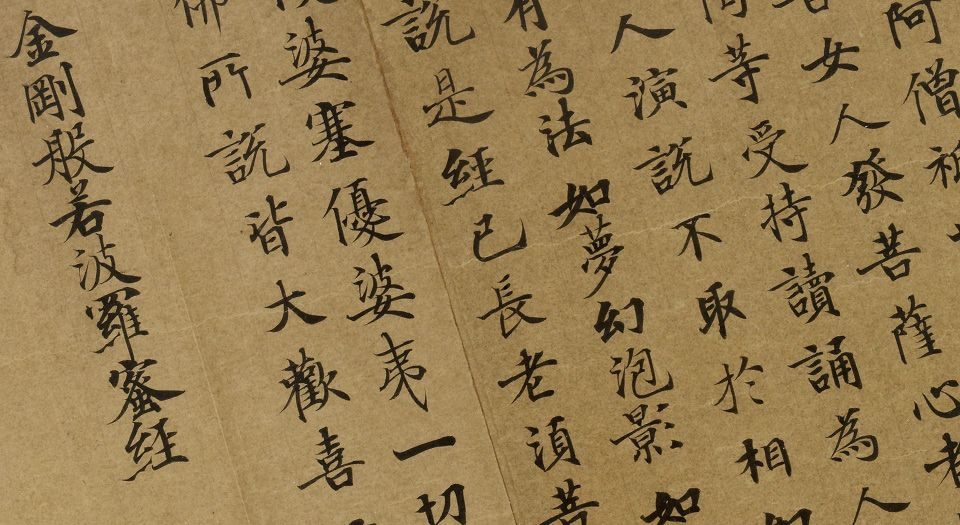 阿僧祇
女人發菩薩心者
等受持讀誦為人
人演說不取於相如
有為法如夢幻泡影如
說是經已長老須菩
婆塞優婆夷一切
佛所說皆大歡喜
金剛般若波羅蜜經